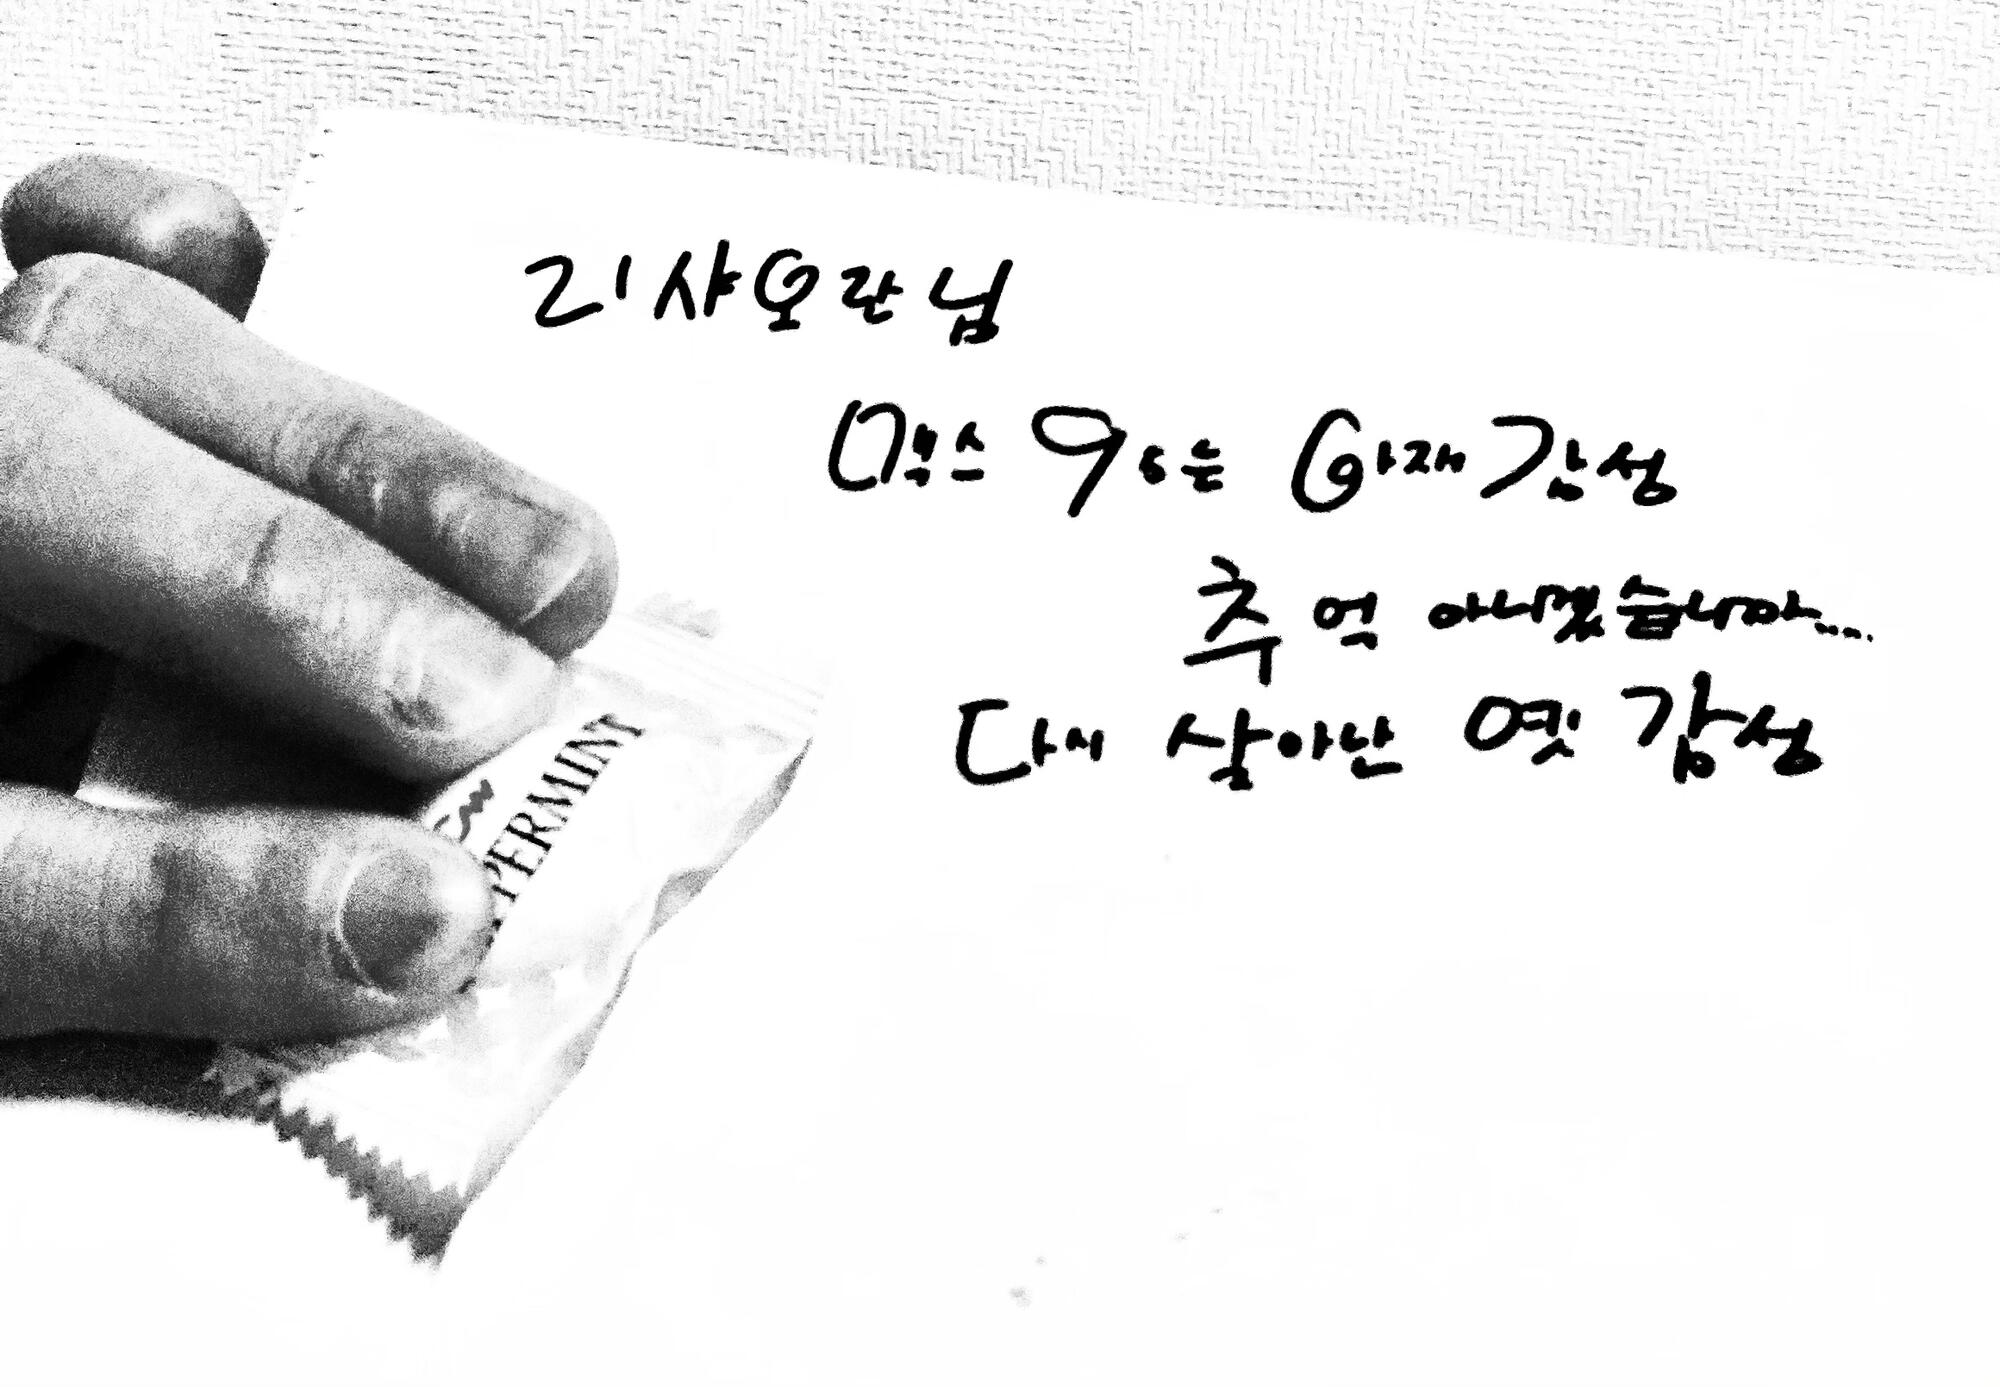 리샤오란님
맥스 95는 아재감성
추억 아니겠습니까....
다시 살아난 옛 감성
PERMINT